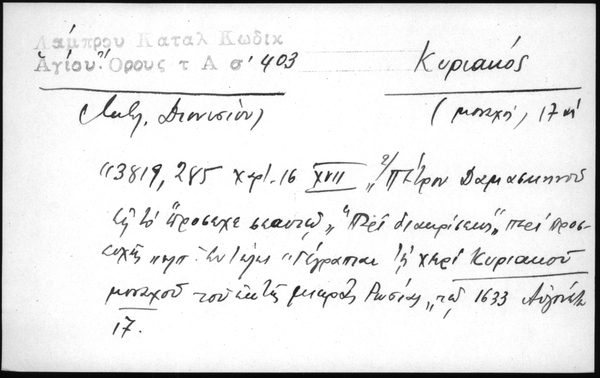 Λάμπρου Καταλ Κωδικ
Ἁγίου Ὄρους τ Α σ' 403
Κυριακός
(Μον. Διονυσίου)
(μοναχός, 17 αἰ
"3819, 285 χαρτ. 16 XVII "Πέτρου Δαμασκηνοῦ
εἰς τό "Πρόσεχε σεαυτῷ" "Περί διακρίσεως" περί προσ-
ευχῆς "Γέγραπται χειρί Κυριακοῦ
μοναχοῦ τοῦ ἐκ τῆς μικρᾶς Ρωσίας" 1633 Αὐγούστ
17.